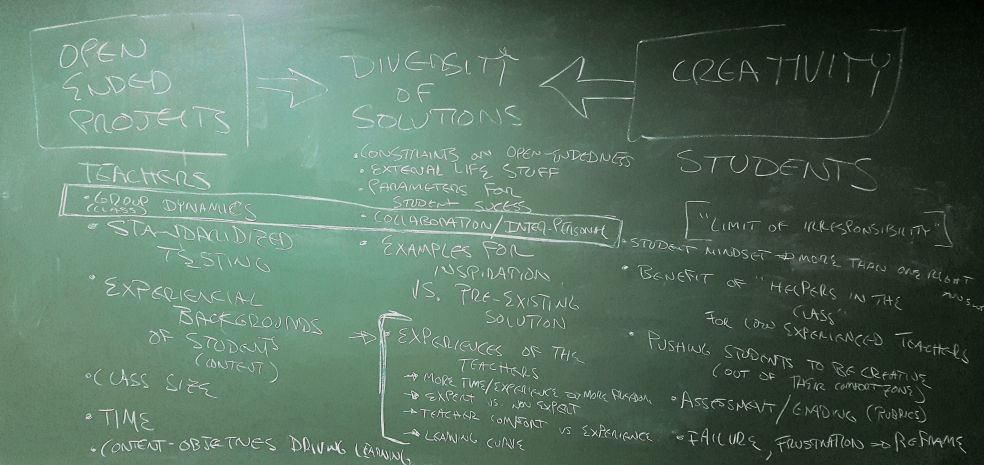 OPEN
ENDED
PROJECTS
DIVERSITY
OF
SOLUTIONS
CREATIVITY
TEACHERS
• GROUP DYNAMICS
(CLASS)
• STANDARIDIZED
TESTING
• EXPERIENCIAL
BACKGROUNDS
OF STUDENTS
(CONTENT)
• CLASS SIZE
• TIME
• CONTENT-OBJECTIVES DRIVING LEARNING
• CONSTRAINTS ON OPEN-ENDEDNESS
• EXTERNAL LIFE STUFF
• PARAMETERS FOR
STUDENT SUCESS
• COLLABORATION/INTER-PERSONAL
• EXAMPLES FOR
INSPIRATION
VS. PRE-EXISTING
SOLUTION
• EXPERIENCES OF THE
TEACHERS
→ MORE TIME/EXPERIENCE → MORE FREEDOM
→ EXPERT VS. NON EXPERT
→ TEACHER COMFORT VS EXPERIENCE
→ LEARNING CURVE
STUDENTS
["LIMIT OF IRRESPONSIBILITY"]
• STUDENT MINDSET → MORE THAN ONE RIGHT
• BENEFIT OF "HELPERS IN THE
CLASS"
FOR LOW EXPERIENCED TEACHERS
• PUSHING STUDENTS TO BE CREATIVE
(OUT OF THEIR COMFORT ZONE)
• ASSESSMENT/GRADING (RUBRICS)
• FAILURE, FRUSTRATION → REFRAME